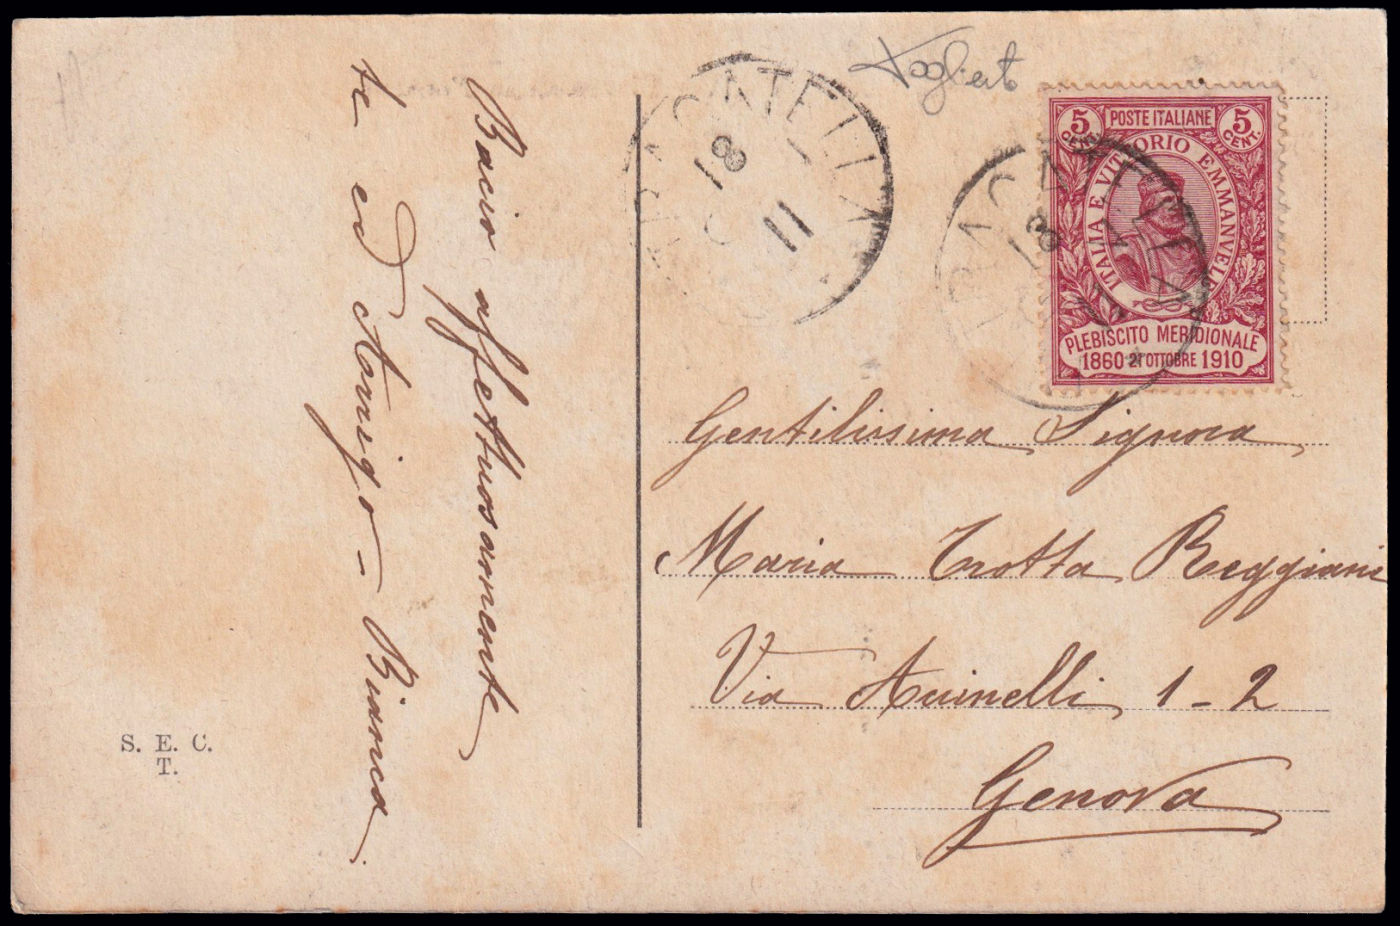 Bacio affettuosamente
te ed Arrigo – Bianca
S. E. C.
T.
18
11
5 CENT. POSTE ITALIANE 5 CENT.
ITALIA E VITTORIO EMMANVELE
PLEBISCITO MERIDIONALE
1860 21 OTTOBRE 1910
Gentilissima Signora
Maria Trotta Reggiani
Via 1 – 2
Genova